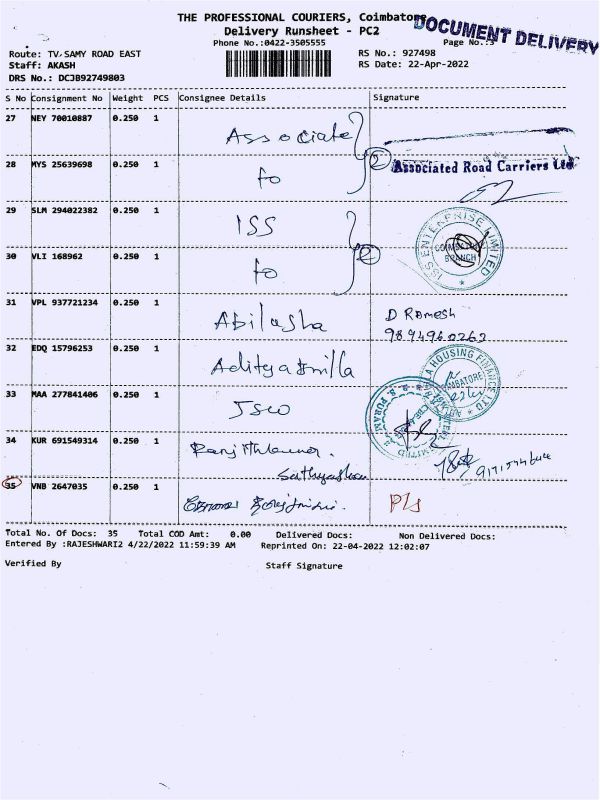 THE PROFESSIONAL COURIERS, Coimbatore
DOCUMENT DELIVERY
Delivery Runsheet - PC2
Phone No.:0422-3505555
Page No.:3
Route: TV SAMY ROAD EAST
RS No.: 927498
Staff: AKASH
RS Date: 22-Apr-2022
DRS No.: DCJB92749803
S No Consignment No Weight PCS Consignee Details Signature
27 NEY 70010887 0.250 1 Associate
28 MYS 25639698 0.250 1 to 2 Associated Road Carriers Ltd
29 SLM 294022382 0.250 1 ISS
ISS ENTERPRISE LIMITED
COIMBATORE
BRANCH
30 VLI 168962 0.250 1 to 2
31 VPL 937721234 0.250 1 Abilasha D Ramesh
9894960262
32 EDQ 15796253 0.250 1 Aditya Birla
HOUSING FINANCE LTD
33 MAA 277841406 0.250 1 JSW
34 KUR 691549314 0.250 1 Ranjithkumar
35 VNB 2647035 0.250 1
Total No. Of Docs: 35 Total COD Amt: 0.00 Delivered Docs: Non Delivered Docs:
Entered By :RAJESHWARI2 4/22/2022 11:59:39 AM Reprinted On: 22-04-2022 12:02:07
Verified By Staff Signature